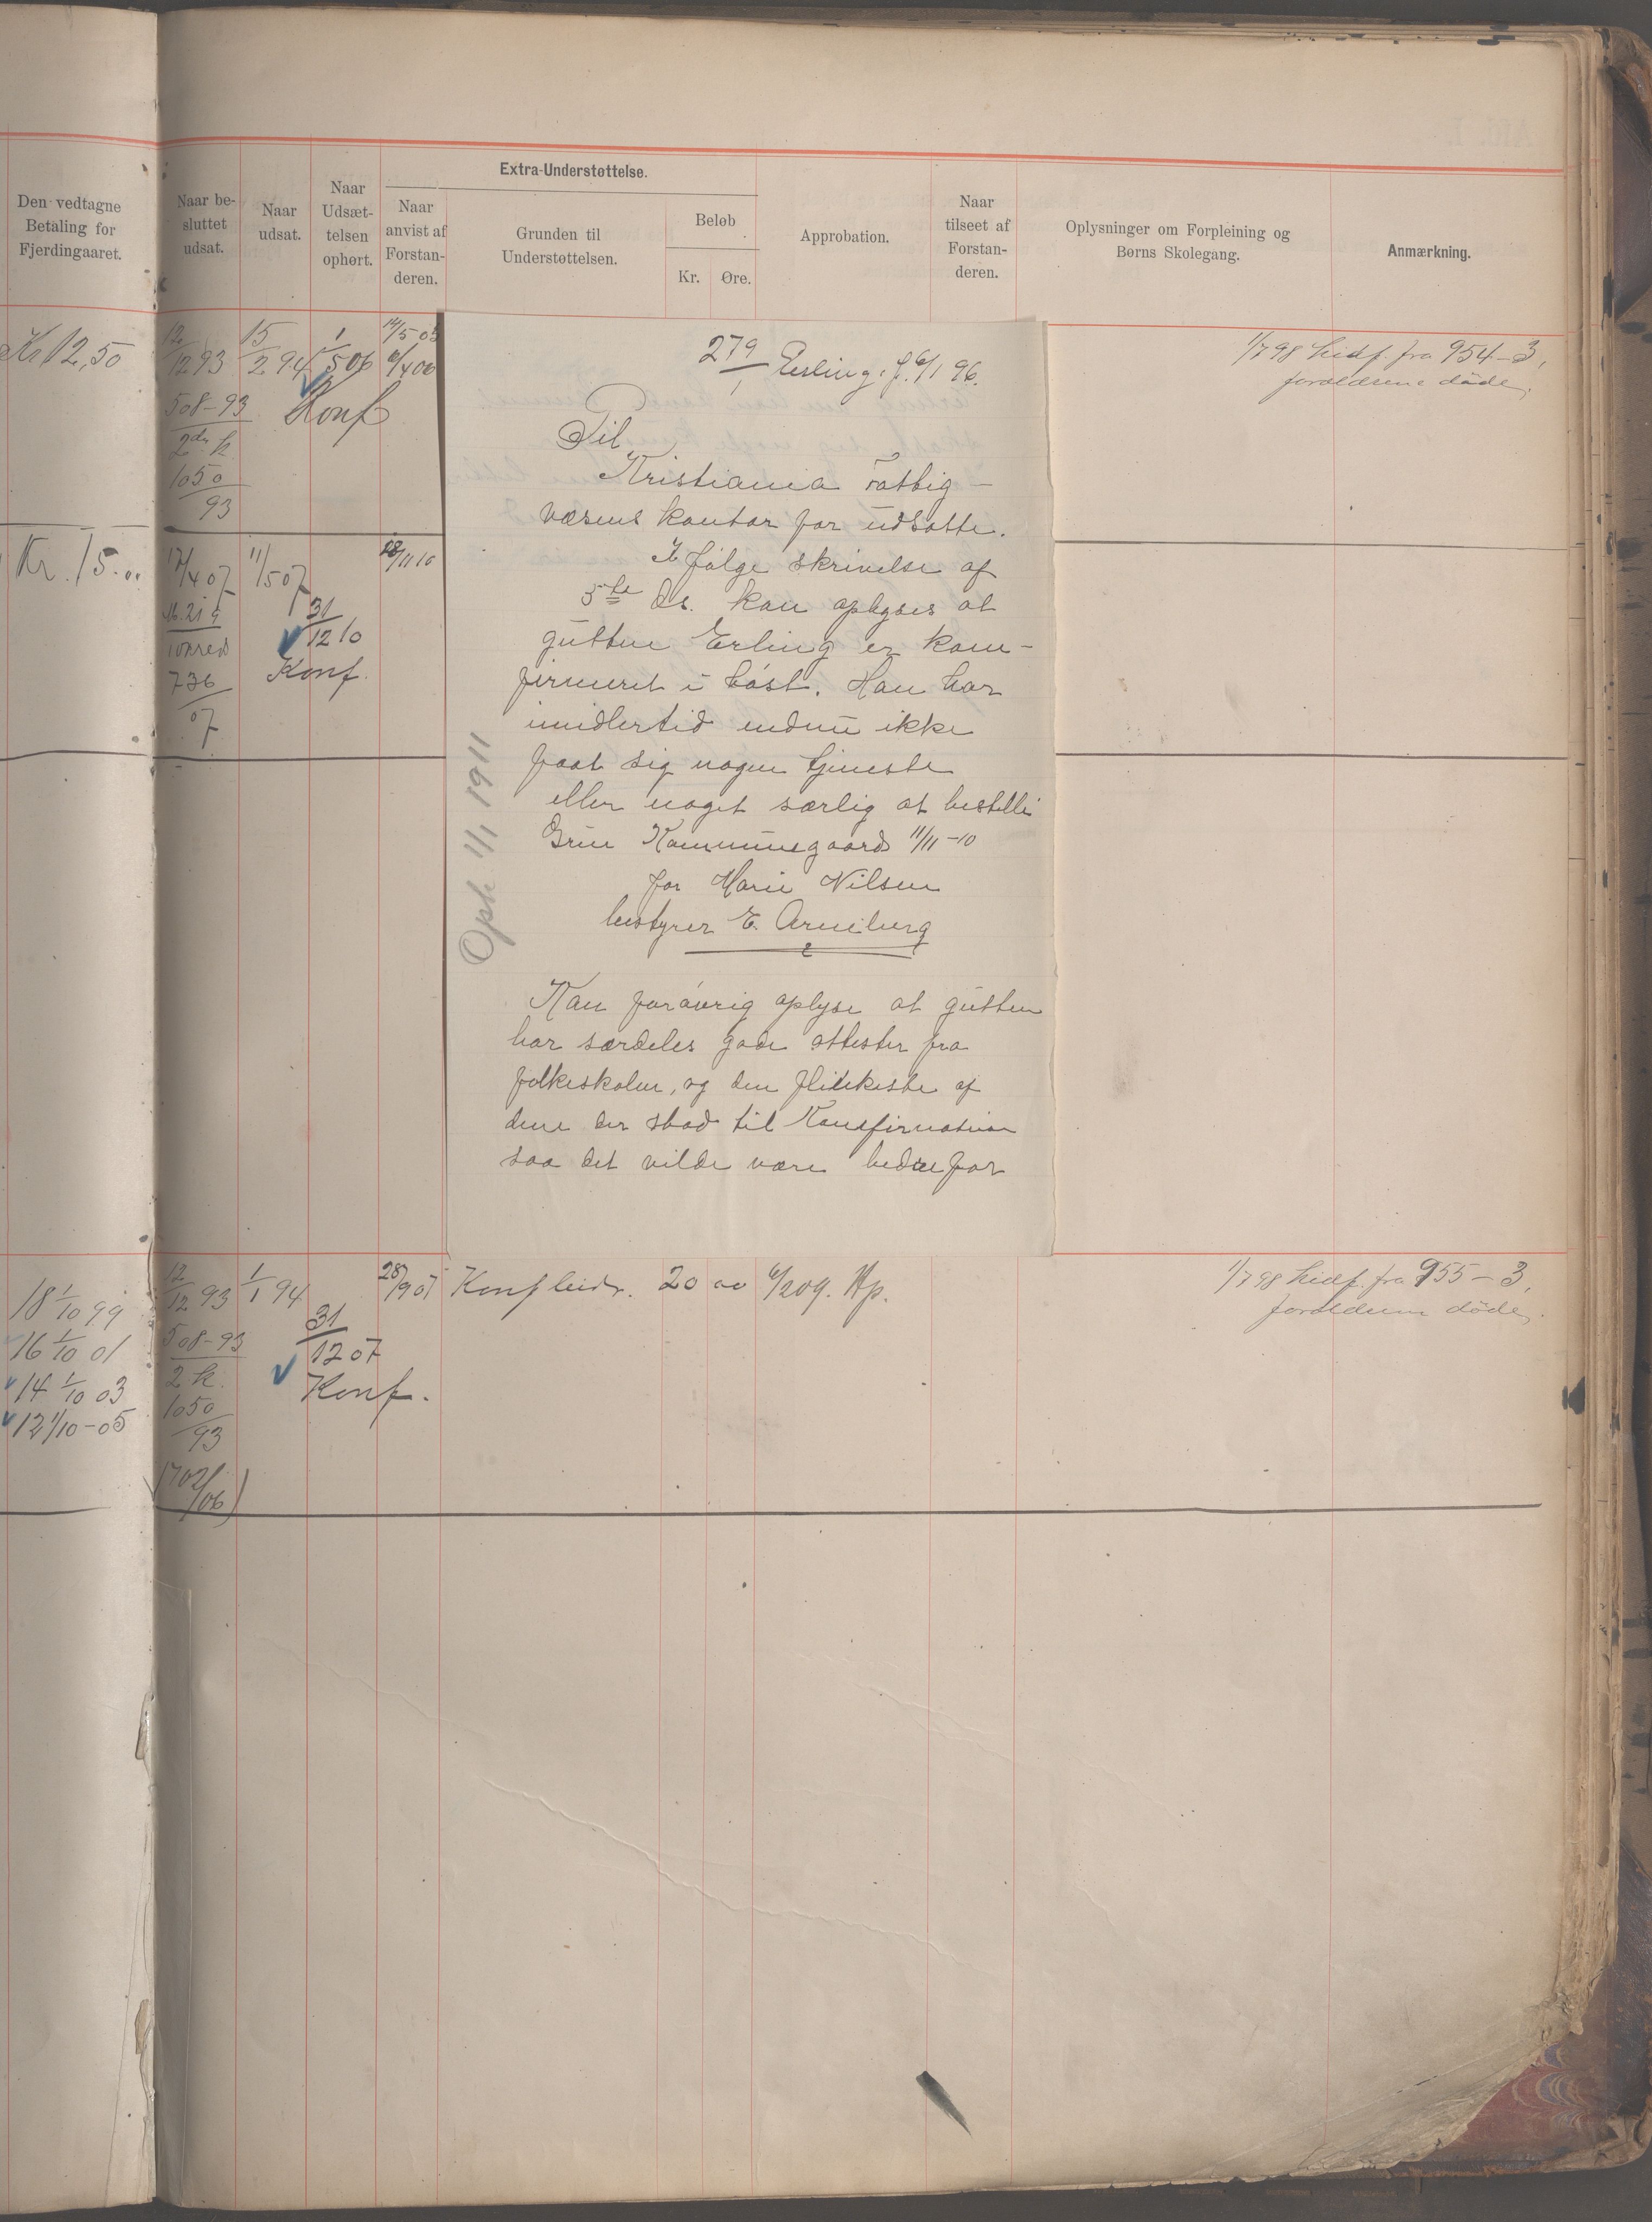 Extra-Understøttelse.
Den vedtagne
Betaling for
Fjerdingaaret.
Naar be-
sluttet
udsat.
Naar
udsat.
Naar
Udsæt-
telsen
ophørt.
Naar
anvist af
Forstan-
deren.
Grunden til
Understøttelsen.
Beløb
Kr.
Øre.
Approbation.
Naar
tilseet af
Forstan-
deren.
Oplysninger om Forpleining og
Børns Skolegang.
Anmærkning.
Kr 12,50
12/12 93
15/2 94
1/5 06
14/5 05
6/4 06
508-93
Konf
2den k
1050
93
1/7 98 hidf. fra 954-3,
forældrene døde.
279/1 Erling, f. 6/1 96.
Til
Kristiania fattig-
væsens kontor for udsatte.
I følge skrivelse af
5te ds. kan oplyses at
gutten Erling er kom-
firmeret i høst. Han har
imidlertid endnu ikke
faat sig nogen tjeneste
eller noget særlig at bestille
Grue Kommunegaard 11/11-10
for Marie Nilsen
bestyrer E. Arneberg
Kan forøvrig oplyse at gutten
har særdeles gode attester fra
folkeskolen, og den flinkeste af
dem der stod til Konfirmation
saa det vilde være bedre for
Oph. 1/1 1911
Kr. 15.00
17/4 07
11/5 07
28/11 10
31/12 10
Konf.
736
07
18 1/10 99
16 1/10 01
14 1/10 03
12 1/10-05
12/12 93
1/1 94
28/9 07
Konfleidr.
20
00
6/2 09. Hp.
1/7 98 hidf. fra 955-3,
forældrene døde.
508-93
31/12 07
2 k.
Konf.
1050
93
(702/06)